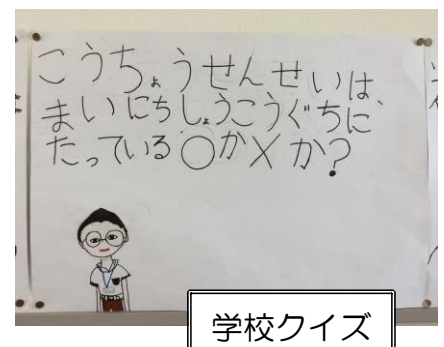 こうちょうせんせいは、
まいにちしょうこうぐちに、
たっている○か×か?
学校クイズ